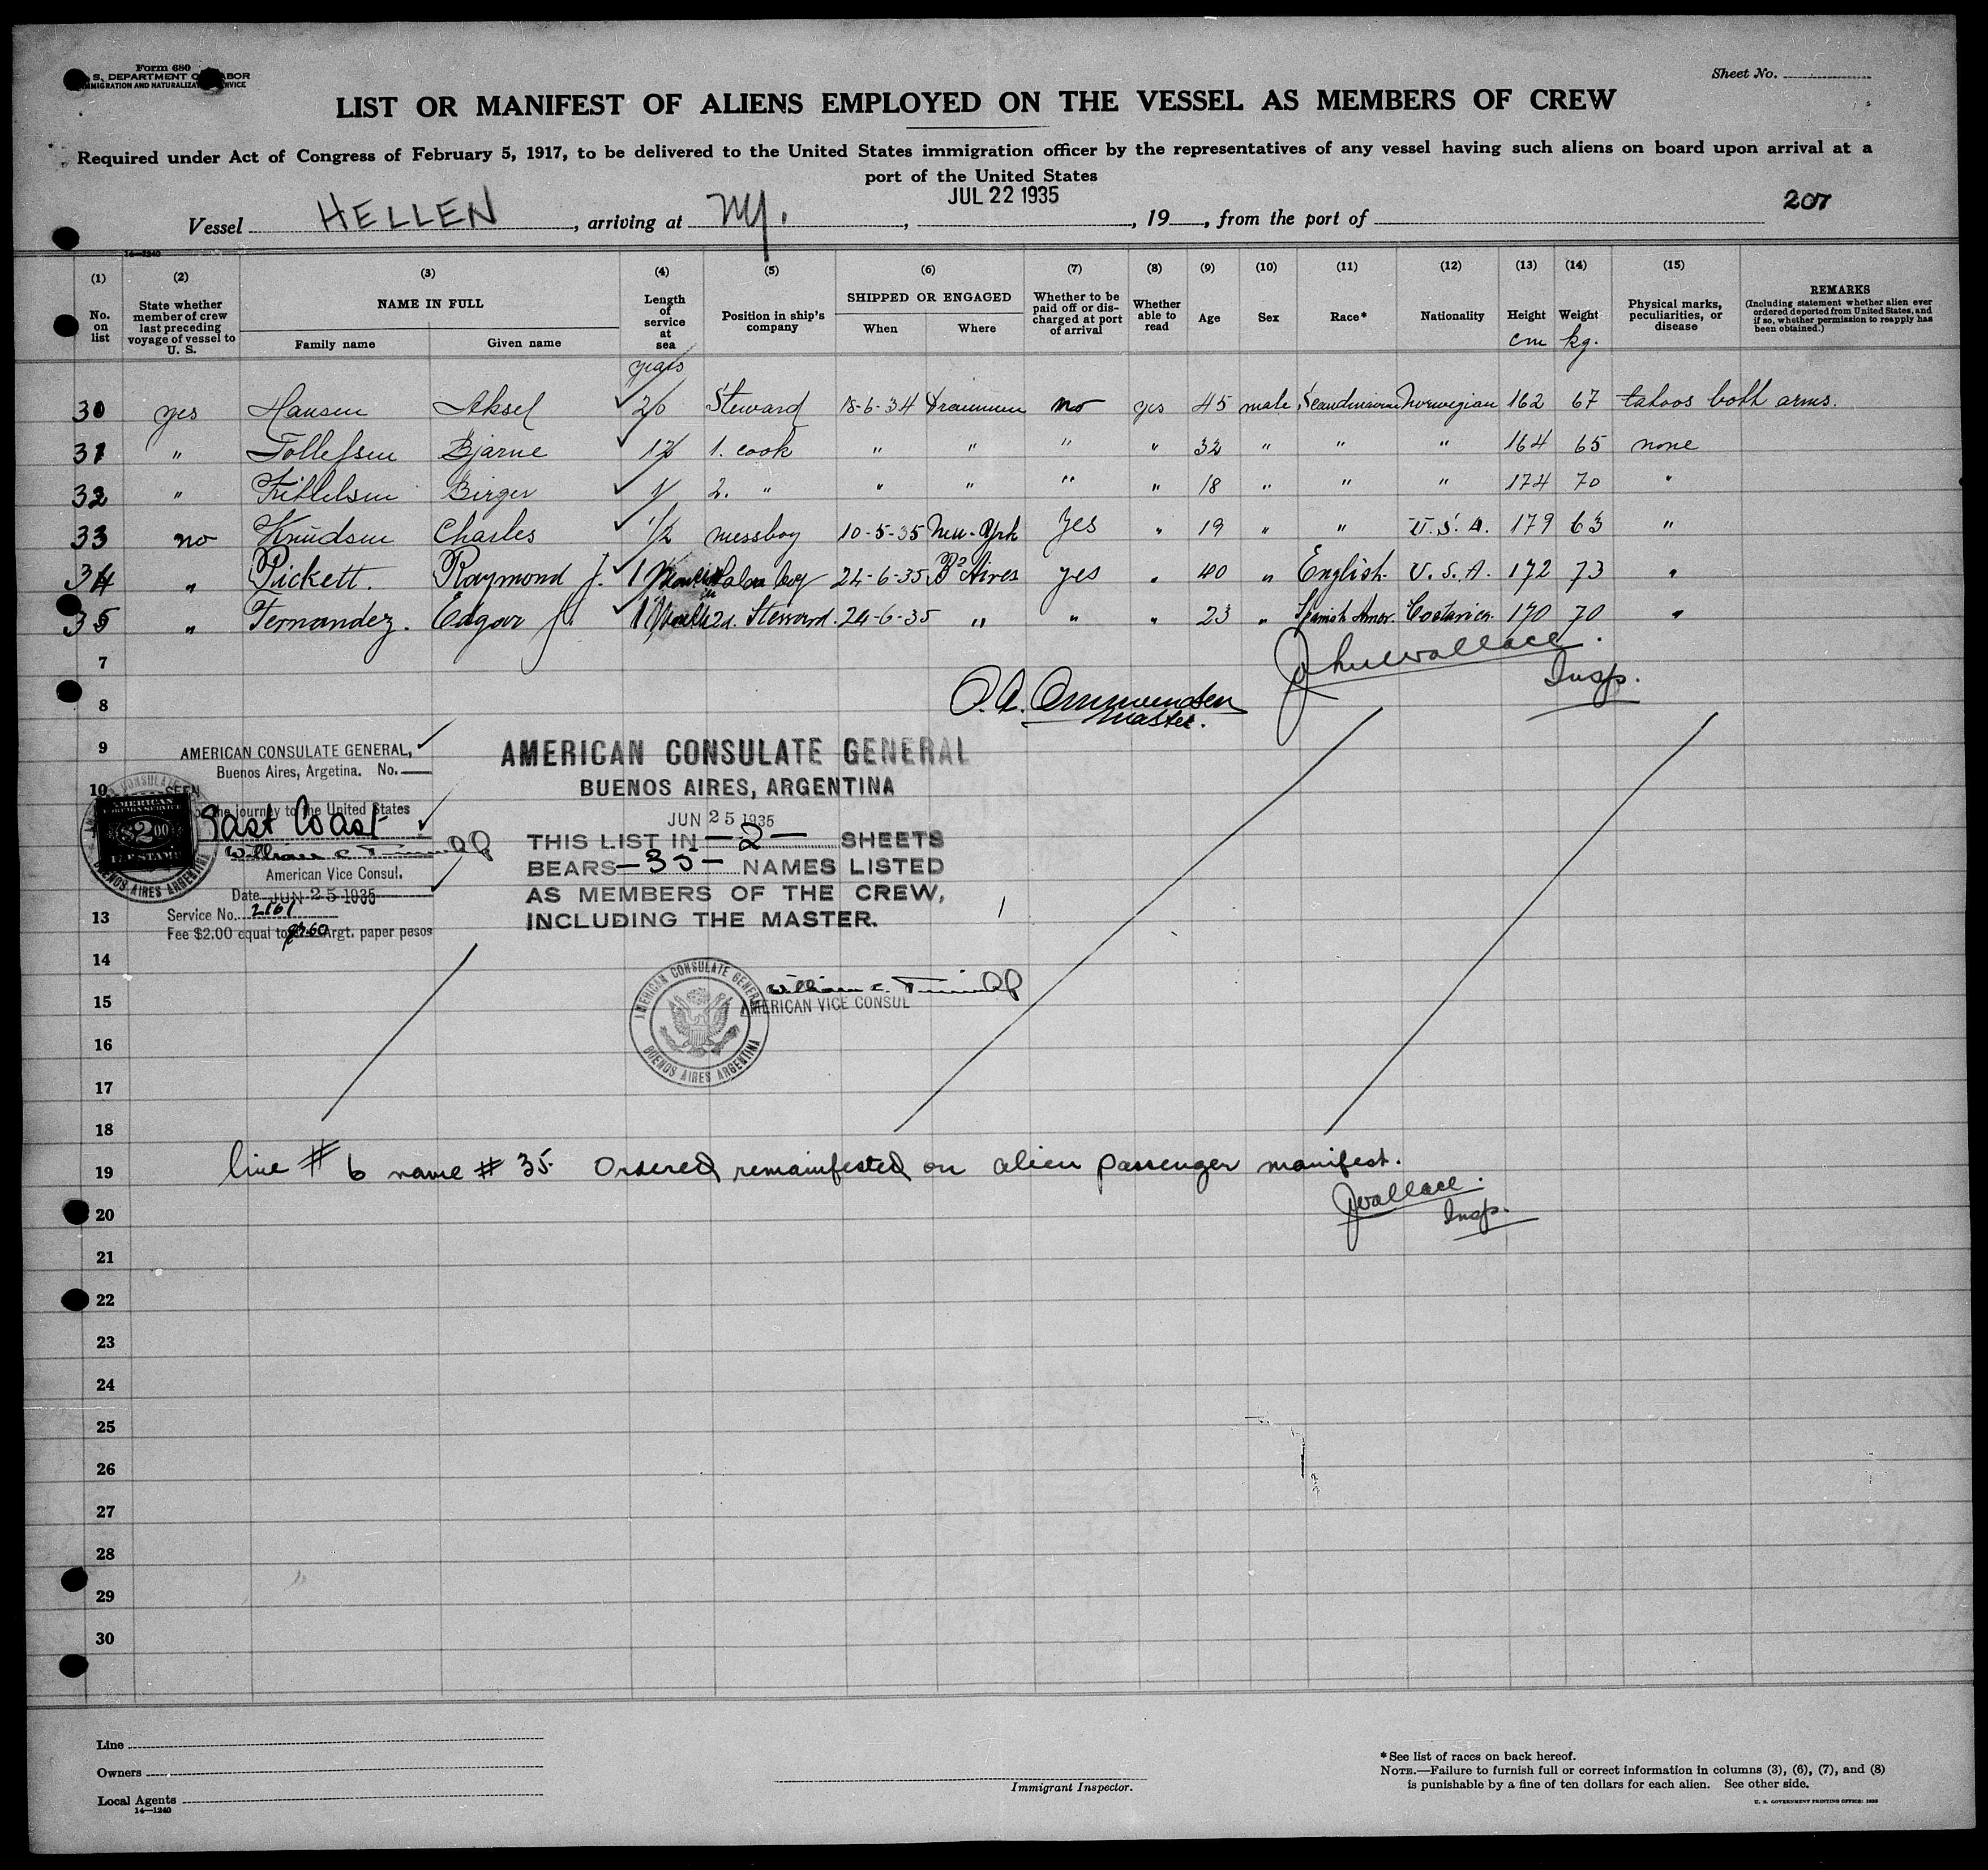 Form 680
S. DEPARTMENT OF LABOR
IMMIGRATION AND NATURALIZATION SERVICE
Sheet No.
LIST OR MANIFEST OF ALIENS EMPLOYED ON THE VESSEL AS MEMBERS OF CREW
Required under Act of Congress of February 5, 1917, to be delivered to the United States immigration officer by the representatives of any vessel having such aliens on board upon arrival at a
port of the United States
JUL 22 1935
207
Vessel HELLEN, arriving at NY., , 19 , from the port of
14—1240
(1) (2) (3) (4) (5) (6) (7) (8) (9) (10) (11) (12) (13) (14) (15)
No. on list
State whether member of crew last preceding voyage of vessel to U. S.
NAME IN FULL
Family name Given name
Length of service at sea
Position in ship's company
SHIPPED OR ENGAGED
When Where
Whether to be paid off or discharged at port of arrival
Whether able to read
Age
Sex
Race*
Nationality
Height cm
Weight kg.
Physical marks, peculiarities, or disease
REMARKS
(Including statement whether alien ever ordered deported from United States, and if so, whether permission to reapply has been obtained.)
years
30 yes Hansen Aksel 20 Steward 18-6-34 Drammen no yes 45 male Scandinavian Norwegian 162 67 tatoos both arms.
31 " Tollefsen Bjarne 1. cook " " " " 32 " " " 164 65 none
32 " Birger 2. " " " " " 18 " " " 174 70 "
33 no Knudsen Charles 1/2 messboy 10-5-35 New-York Yes " 19 " " U.S.A. 179 63 "
34 " Pickett. Raymond J. 1 Month Salon boy 24-6-35 Bs Aires yes " 40 " English. U.S.A. 172 73 "
35 " Fernandez. Edgar J. 1 Month 2d. Steward. 24-6-35 " " " 23 " Spanish Amer. Costarica. 170 70 "
7
John Wallace.
Insp.
8
O. A. Ommundsen
Master.
9
AMERICAN CONSULATE GENERAL,
Buenos Aires, Argetina. No.
10
SEEN
the journey to the United States
East Coast
AMERICAN
FOREIGN SERVICE
$2.00
FEE STAMP
BUENOS AIRES ARGENTINA
American Vice Consul.
Date JUN 25 1935
Service No. 2161
Fee $2.00 equal to Argt. paper pesos
AMERICAN CONSULATE GENERAL
BUENOS AIRES, ARGENTINA
JUN 25 1935
THIS LIST IN —2— SHEETS
BEARS —35— NAMES LISTED
AS MEMBERS OF THE CREW,
INCLUDING THE MASTER.
13
14
William C.
AMERICAN VICE CONSUL
AMERICAN CONSULATE GENERAL
BUENOS AIRES ARGENTINA
15
16
17
18
19
line # 6 name # 35. Ordered remanifested on alien passenger manifest.
JWallace.
Insp.
20
21
22
23
24
25
26
27
28
29
30
Line
Owners
Local Agents
14—1240
Immigrant Inspector.
*See list of races on back hereof.
NOTE.—Failure to furnish full or correct information in columns (3), (6), (7), and (8)
is punishable by a fine of ten dollars for each alien. See other side.
U. S. GOVERNMENT PRINTING OFFICE: 1933